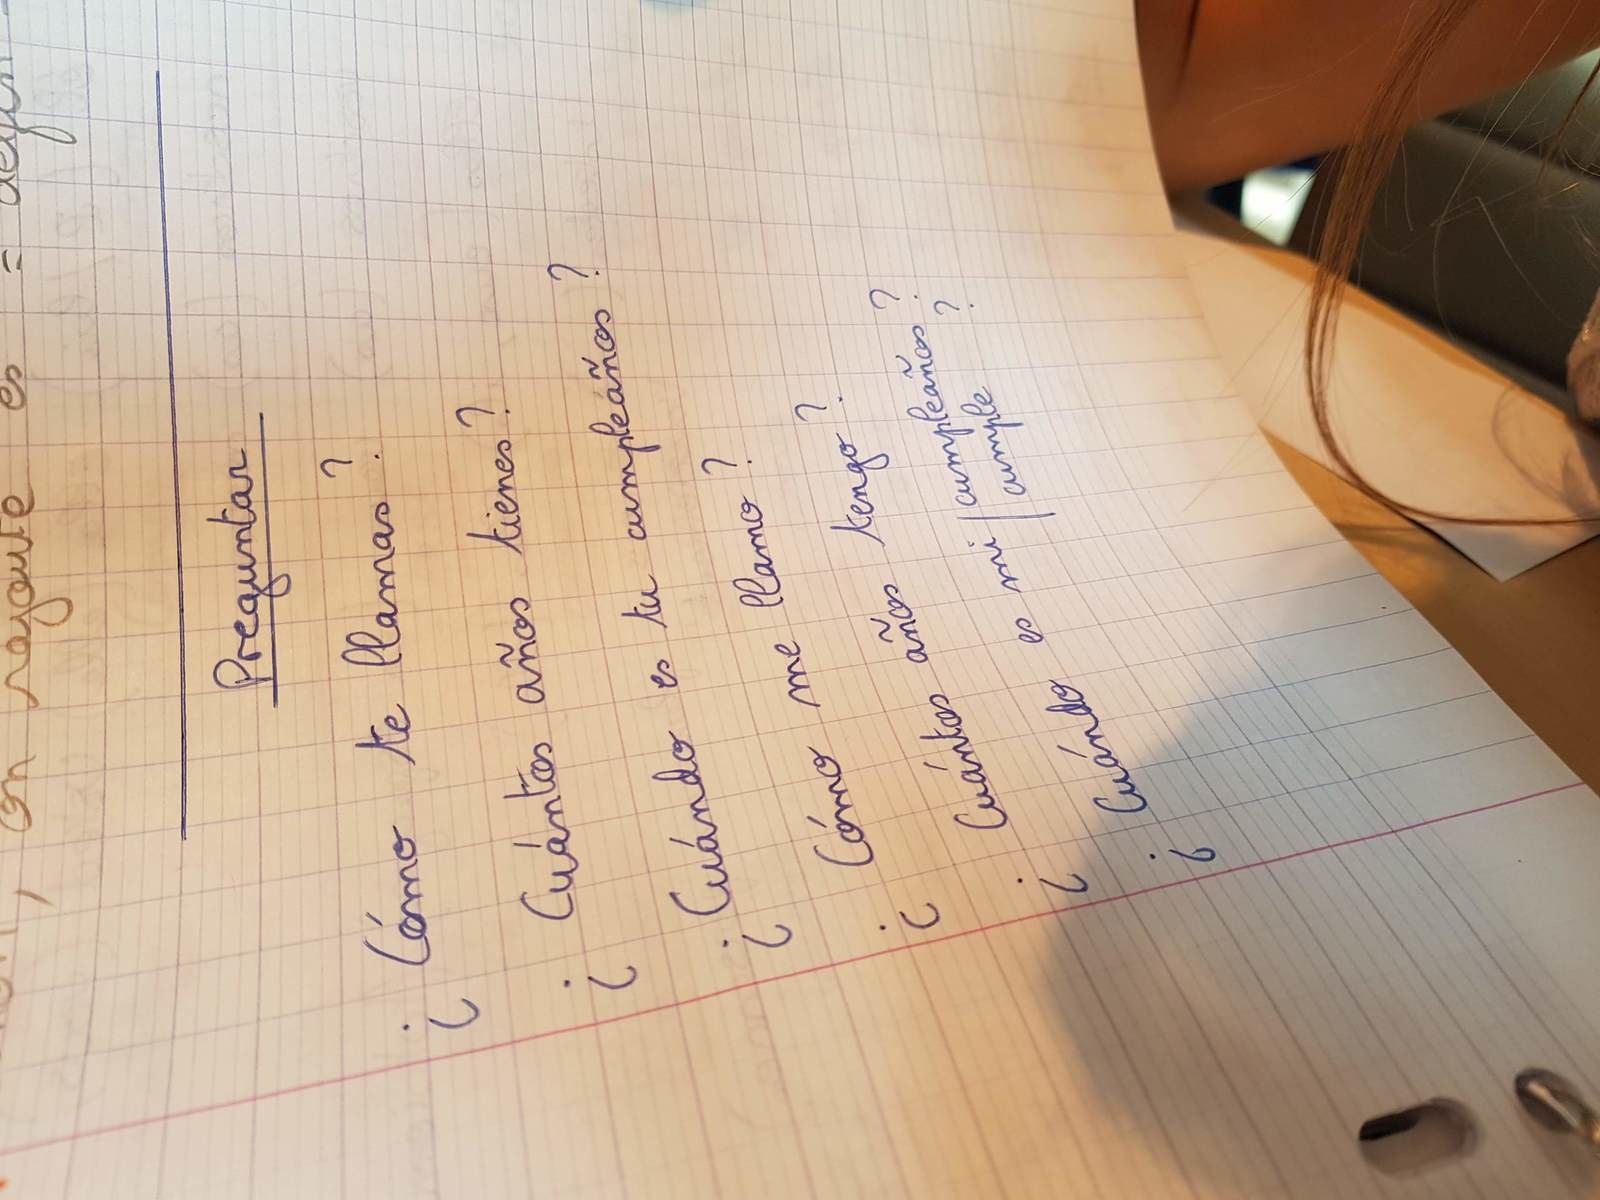 , on rajoute es =
Preguntar
¿ Cómo te llamas ?
¿ Cuántos años tienes ?
¿ Cuándo es tu cumpleáños ?
¿ Cómo me llamo ?
¿ Cuántos años tengo ?
¿ Cuándo es mi cumpleaños ?
cumple ?